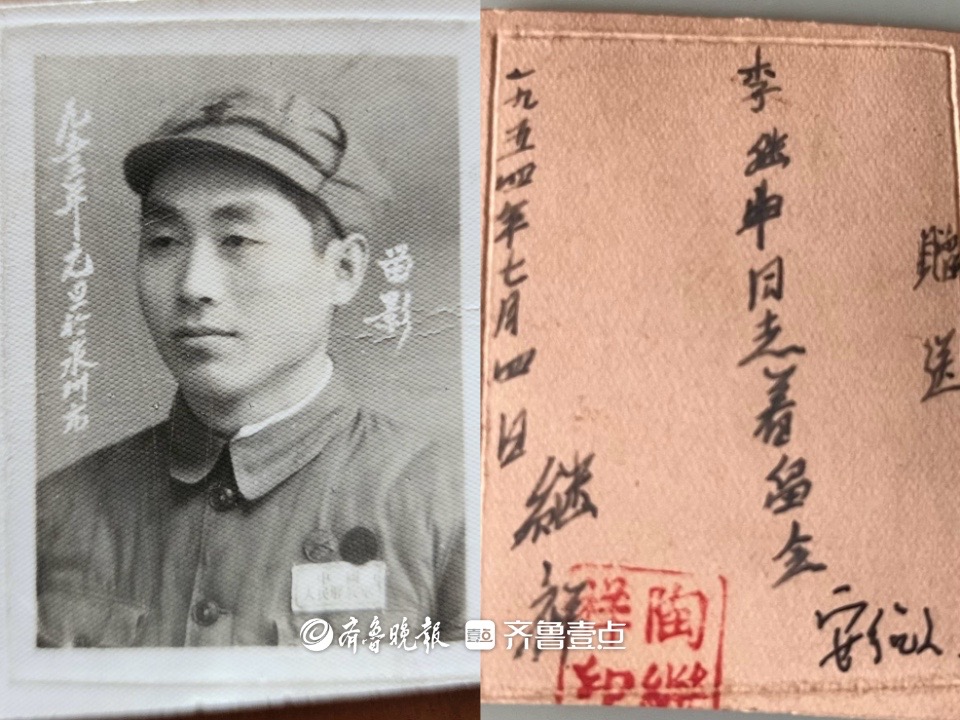 留影
年元旦於泉州市
中國
人民解放軍
贈送
李继申同志着留念
一九五四年七月四日
继祥
陶繼祥印
安徽
齐鲁晚报
壹点
齐鲁壹点